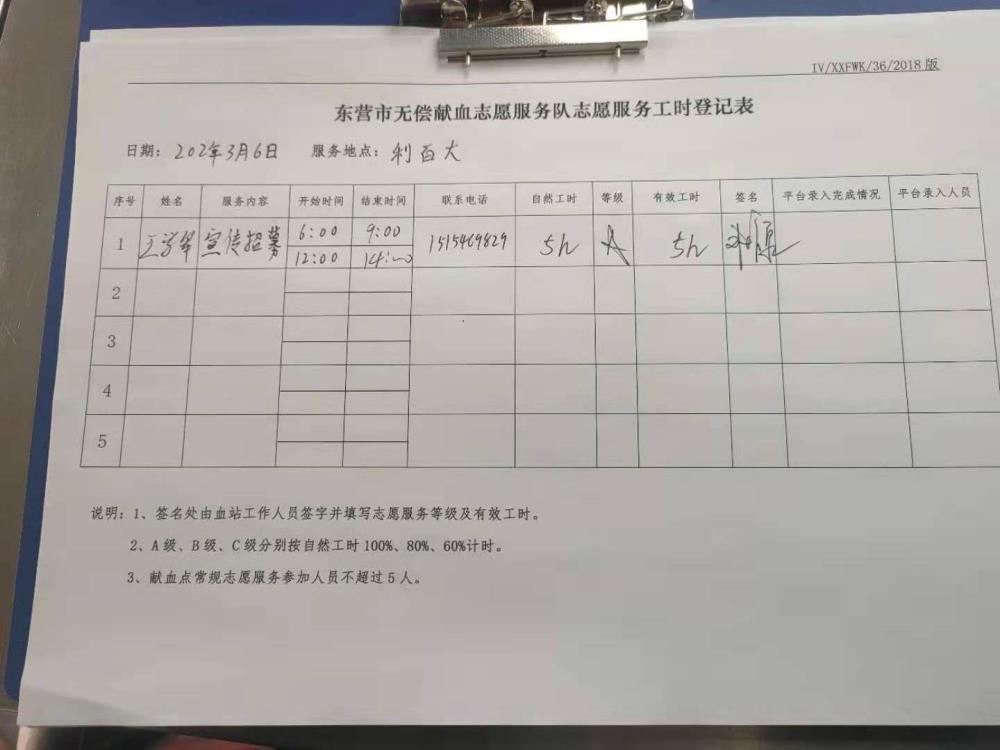 IV/XXFWK/36/2018 版
东营市无偿献血志愿服务队志愿服务工时登记表
日期: 202年3月6日 服务地点: 利百大
序号 姓名 服务内容 开始时间 结束时间 联系电话 自然工时 等级 有效工时 签名 平台录入完成情况 平台录入人员
1 宣传招募 6:00 9:00 1515469829 5h A 5h
12:00 14:00
2
3
4
5
说明: 1、签名处由血站工作人员签字并填写志愿服务等级及有效工时。
2、A级、B级、C级分别按自然工时100%、80%、60%计时。
3、献血点常规志愿服务参加人员不超过5人。